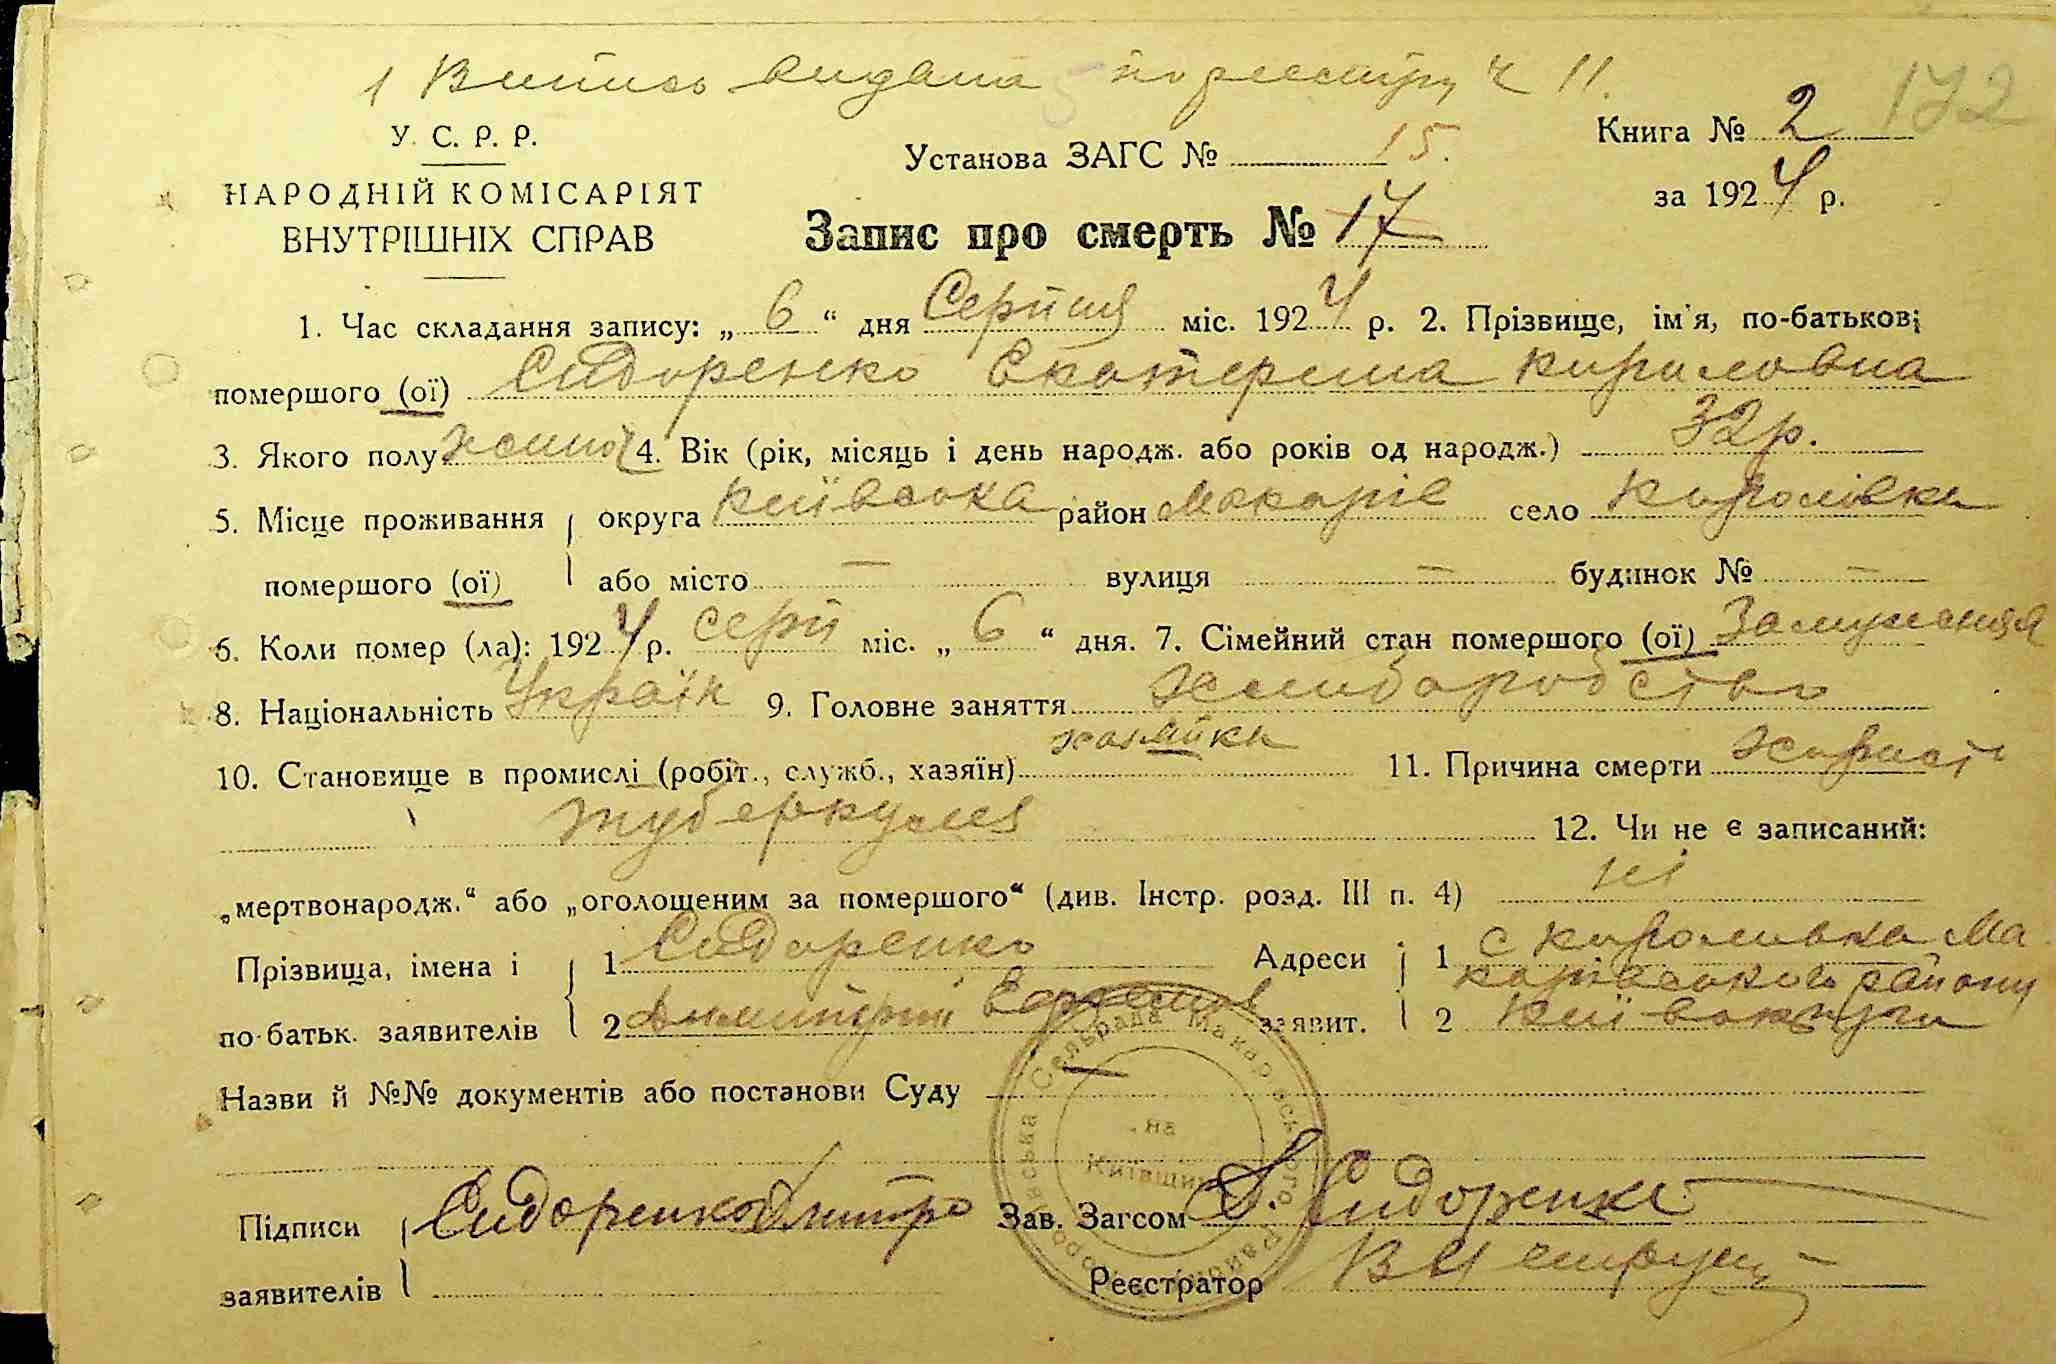 1 Випись видана по реестру ч 11.
172
У. С. Р. Р.
НАРОДНІЙ КОМІСАРІЯТ
ВНУТРІШНІХ СПРАВ
Установа ЗАГС № 15.
Книга № 2
за 1924 р.
Запис про смерть № 17
1. Час складання запису: „ 6 “ дня Серпня міс. 1924 р. 2. Прізвище, ім'я, по-батькові
помершого (ої) Сидоренко Екатерина Кириловна
3. Якого полу жіноч 4. Вік (рік, місяць і день народж. або років од народж.) 32 р.
5. Місце проживання округа Київська район Макарів село Королівка
помершого (ої) або місто — вулиця — будинок № —
6. Коли помер (ла): 1924 р. серп міс. „ 6 “ дня. 7. Сімейний стан помершого (ої) Замужняя
8. Національність Україн 9. Головне заняття хлиборобство
10. Становище в промислі (робіт., служб., хазяїн) хазяйка 11. Причина смерти
туберкулея 12. Чи не є записаний:
„мертвонародж.“ або „оголошеним за помершого“ (див. Інстр. розд. III п. 4) ні
Прізвища, імена і 1 Сидоренко Адреси 1 с Короливка Ма
карівського району
по-батьк. заявителів 2 Димитрий заявит. 2 Київ округи
Назви й №№ документів або постанови Суду
Сельрада Макарівського Району
на Київщині
Підписи Сидоренко Дмитро Зав. Загсом Д. Сидоренко
заявителів Реєстратор